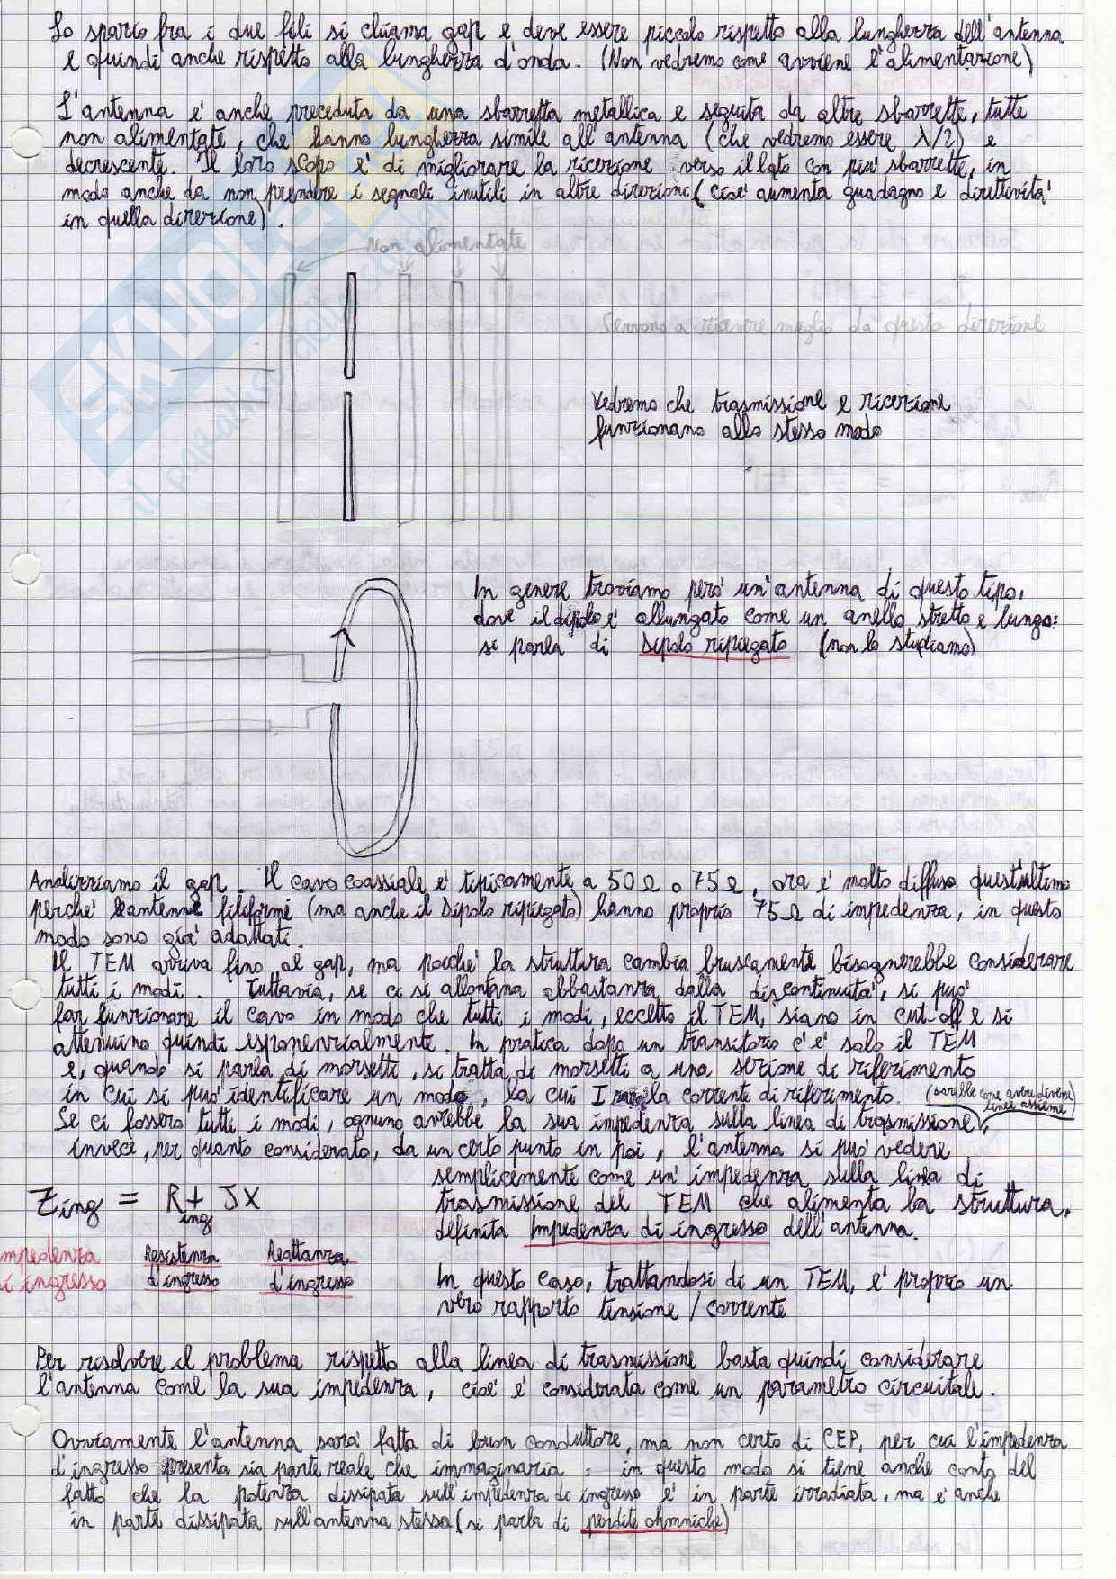 Lo spazio fra i due fili si chiama gap e deve essere piccolo rispetto alla lunghezza dell'antenna
e quindi anche rispetto alla lunghezza d'onda. (Non vedremo come avviene l'alimentazione)
L'antenna e' anche preceduta da una sbarretta metallica e seguita da altre sbarrette, tutte
non alimentate, che hanno lunghezza simile all'antenna (che vedremo essere λ/2) e
decrescente. Il loro scopo e' di migliorare la ricezione verso il lato con piu' sbarrette, in
modo anche da non prendere i segnali inutili in altre direzioni (cioe' aumenta guadagno e direttivita'
in quella direzione).
Non alimentate
Servono a ricevere meglio da questa direzione
Vedremo che trasmissione e ricezione
funzionano allo stesso modo
In genere troviamo pero' un'antenna di questo tipo,
dove il dipolo e' allungato come un anello stretto e lungo:
si parla di dipolo ripiegato (non lo studiamo)
Analizziamo il gap. Il cavo coassiale e' tipicamente a 50Ω o 75Ω, ora e' molto diffuso quest'ultimo
perche' le antenne filiformi (ma anche il dipolo ripiegato) hanno proprio 75Ω di impedenza, in questo
modo sono gia' adattati.
Il TEM arriva fino al gap, ma poiche' la struttura cambia bruscamente bisognerebbe considerare
tutti i modi. Tuttavia, se ci si allontana abbastanza dalla discontinuita', si puo'
far funzionare il cavo in modo che tutti i modi, eccetto il TEM, siano in cut-off e si
attenuino quindi esponenzialmente. In pratica dopo un transitorio c'e' solo il TEM
e, quando si parla di morsetti, si tratta di morsetti a una sezione di riferimento
in cui si puo' identificare un modo, la cui I sara' la corrente di riferimento.
(sarebbe come avere diverse
linee assieme)
Se ci fossero tutti i modi, ognuno avrebbe la sua impedenza sulla linea di trasmissione,
invece, per quanto considerato, da un certo punto in poi, l'antenna si puo' vedere
semplicemente come un'impedenza sulla linea di
trasmissione del TEM che alimenta la struttura,
definita Impedenza di ingresso dell'antenna.
Zing = Ring + JX
mpedenza
i ingresso
Resistenza
d'ingresso
Reattanza
d'ingresso
In questo caso, trattandosi di un TEM, e' proprio un
vero rapporto tensione / corrente
Per risolvere il problema rispetto alla linea di trasmissione basta quindi considerare
l'antenna come la sua impedenza, cioe' e' considerata come un parametro circuitale.
Ovviamente l'antenna sara' fatta di buon conduttore, ma non certo di CEP, per cui l'impedenza
d'ingresso presenta sia parte reale che immaginaria: in questo modo si tiene anche conto del
fatto che la potenza dissipata sull'impedenza di ingresso e' in parte irradiata, ma e' anche
in parte dissipata sull'antenna stessa (si parla di perdite ohmiche)
SKUOLA